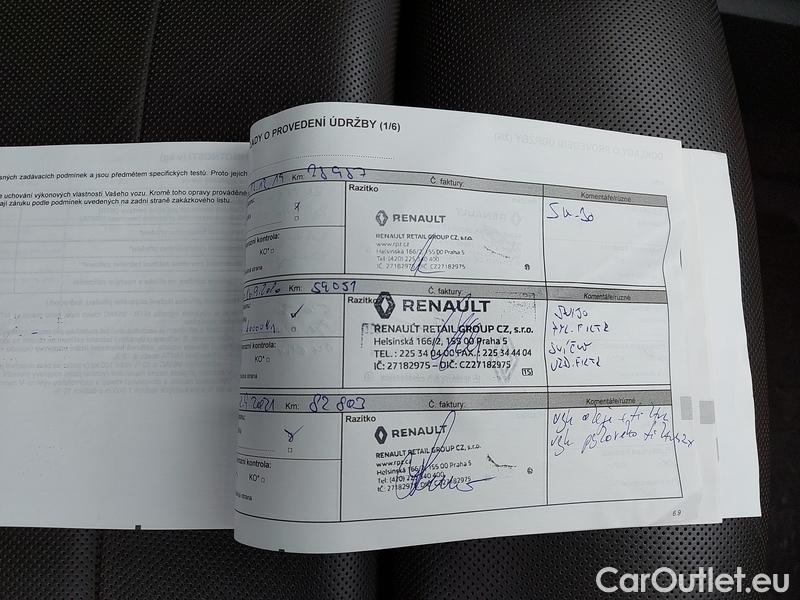 ADY O PROVEDENÍ ÚDRŽBY (1/6)
esných zadávacích podmínek a jsou předmětem specifických testů. Proto jejich
e uchování výkonových vlastností Vašeho vozu. Kromě toho opravy prováděné
ají záruku podle podmínek uvedených na zadní straně zakázkového listu.
Km: 28987
Č. faktury:
Komentáře/různé
Razítko
RENAULT
RENAULT RETAIL GROUP CZ, s.r.o.
www.rpr.cz
Helsinská 166/2, 155 00 Praha 5
Tel: (420) 225 340 400
IČ: 27182975, DIČ: CZ27182975
5W-30
kontrola:
KO*
strana
Km: 59051
Č. faktury:
Komentáře/různé
Razítko
RENAULT
RENAULT RETAIL GROUP CZ, s.r.o.
Helsinská 166/2, 155 00 Praha 5
TEL.: 225 34 04 00 FAX.: 225 34 44 04
IČ: 27182975 – DIČ: CZ27182975
15
5W30
PYL. FILTR
SVÍČKY
VZD. FILTR
kontrola:
KO*
strana
2021 Km: 82 803
Č. faktury:
Komentáře/různé
Razítko
RENAULT
RENAULT RETAIL GROUP CZ, s.r.o.
www.rpr.cz
Helsinská 166/2, 155 00 Praha 5
Tel: (420) 225 340 400
IČ: 27182975, DIČ:
oleje + filtru
pylového filtru
kontrola:
KO*
strana
6.9
CarOutlet.eu